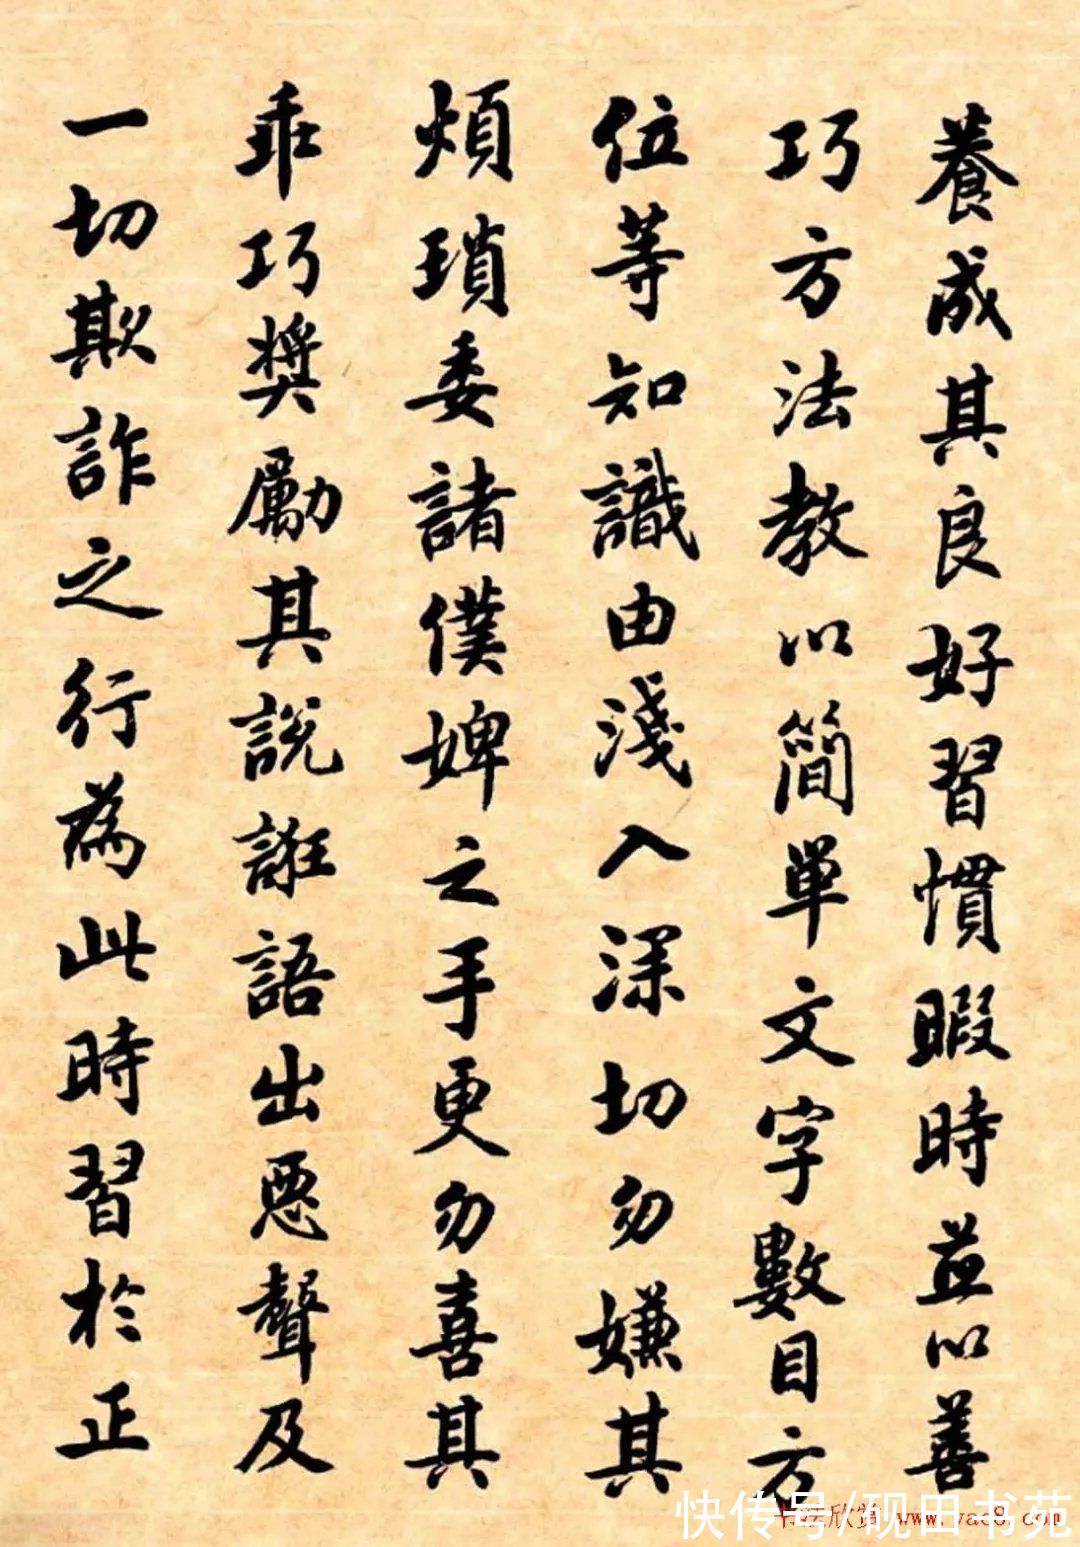 養成其良好習慣暇時並以善
巧方法教以簡單文字數目方
位等知識由淺入深切勿嫌其
煩瑣委諸僕婢之手更勿喜其
乖巧獎勵其說誑語出惡聲及
一切欺詐之行為此時習於正
快传号/砚田书苑